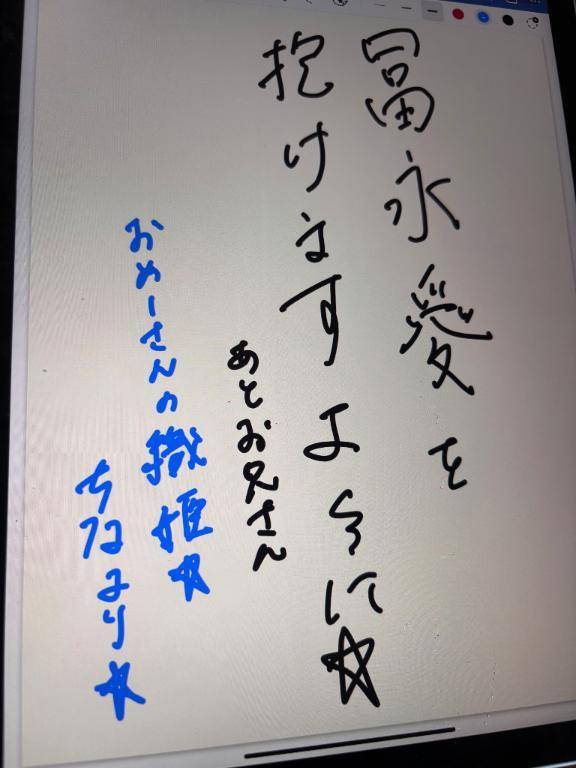 冨永愛を
抱けますように☆
あとお兄さん
おめーさんの織姫☆
ちねより☆